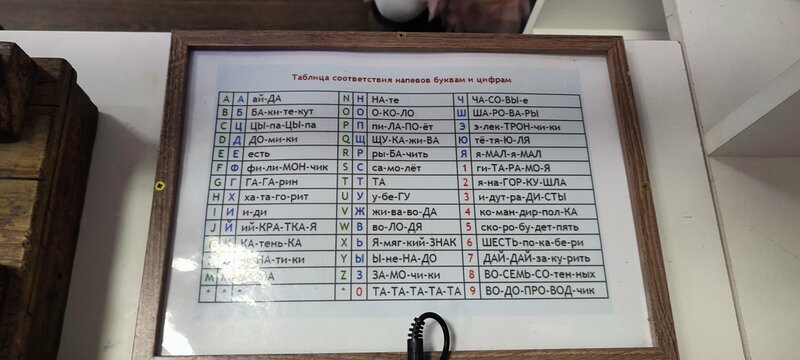 Таблица соответствия напевов буквам и цифрам
A А ай-ДА N Н НА-те Ч ЧА-СО-ВЫ-е
B Б БА-ки-те-кут O О О-КО-ЛО Ш ША-РО-ВА-РЫ
C Ц ЦЫ-па-ЦЫ-па P П пи-ЛА-ПО-ёт Э э-лек-ТРОН-чи-ки
D Д ДО-ми-ки Q Щ ЩУ-КА-жи-ВА Ю тё-тя-Ю-ЛЯ
E Е есть R Р ры-БА-чить Я я-МАЛ-я-МАЛ
F Ф фи-ли-МОН-чик S С са-мо-лёт 1 ги-ТА-РА-МО-Я
G Г ГА-ГА-рин T Т ТА 2 я-на-ГОР-КУ-ШЛА
H Х ха-та-го-рит U У у-бе-ГУ 3 и-дут-ра-ДИ-СТЫ
I И и-ди V Ж жи-ва-во-ДА 4 ко-ман-дир-пол-КА
J Й ий-КРА-ТКА-Я W В во-ЛО-ДЯ 5 ско-ро-бу-дет-пять
КА-тень-КА X Ь Я-мяг-кий-ЗНАК 6 ШЕСТЬ-по-ка-бе-ри
НА-ти-ки Y Ы Ы-не-НА-ДО 7 ДАЙ-ДАЙ-за-ку-рить
M Z З ЗА-МО-чи-ки 8 ВО-СЕМЬ-СО-тен-ных
- - - - 0 ТА-ТА-ТА-ТА-ТА 9 ВО-ДО-ПРО-ВОД-чик